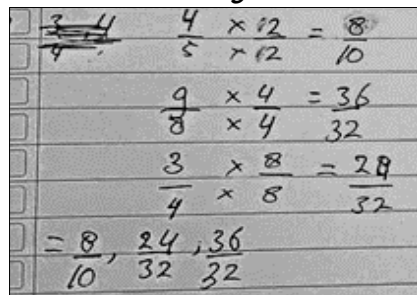 4/5 ×12/×12 = 8/10
9/8 ×4/×4 = 36/32
3/4 ×8/×8 = 24/32
= 8/10, 24/32, 36/32